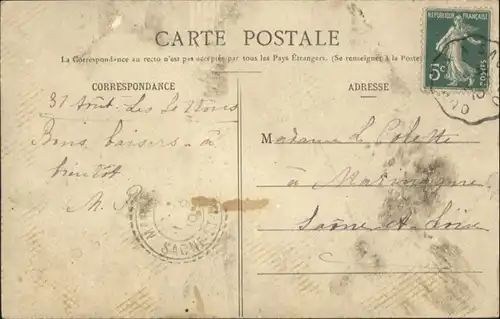 CARTE POSTALE
La Correspondance au recto n'est pas acceptée par tous les Pays Étrangers. (Se renseigner à la Poste)
CORRESPONDANCE
ADRESSE
RÉPUBLIQUE FRANÇAISE
5c
POSTES
31 Août
Bons baisers à
bientôt
M.
Madame
à
Saône et Loire
SAÔNE